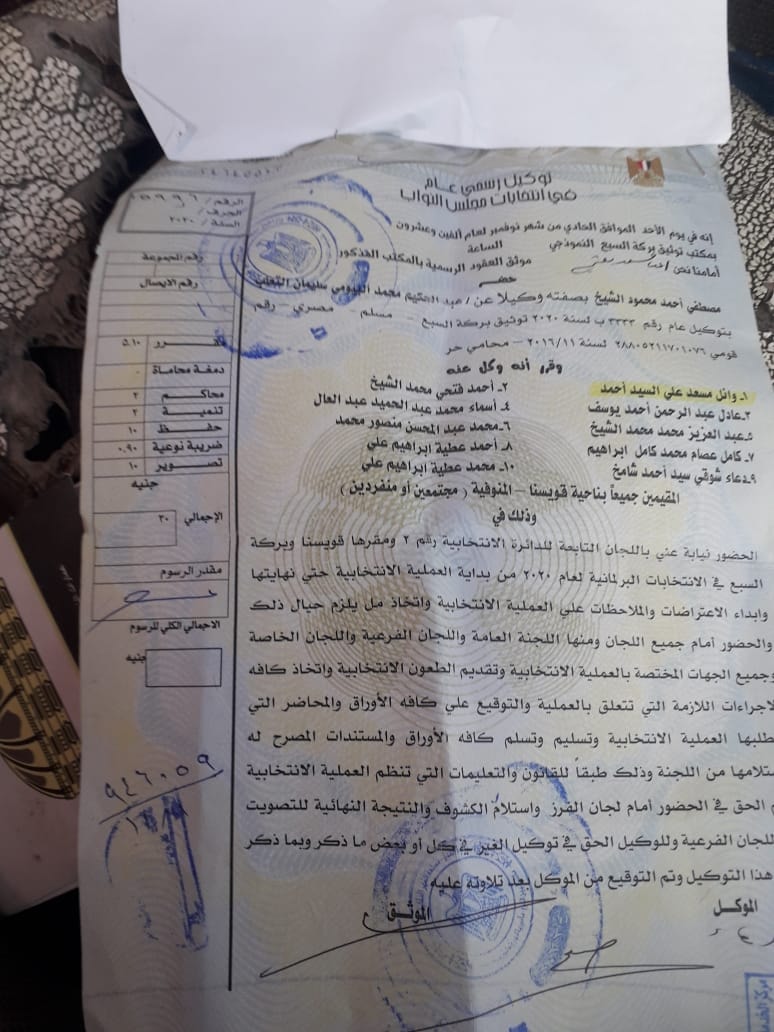 توكيل رسمي عام
في انتخابات مجلس النواب
الرقم /
الحرف /
السنة / ٢٠٢٠
إنه في يوم الأحد الموافق الحادي من شهر نوفمبر لعام ألفين وعشرون
بمكتب توثيق بركة السبع النموذجي الساعة
أمامنا نحن / موثق العقود الرسمية بالمكتب المذكور
حضر
مصطفي أحمد محمود الشيخ بصفته وكيلا عن / عبد الحكيم محمد البيومي سليمان
بتوكيل عام رقم ٣٣٣٣ ب لسنة ٢٠٢٠ توثيق بركة السبع – مسلم – مصري رقم
قومي ٢٨٨٠٥٢١١٧٠١٠٧٦ لسنة ٢٠١٦/١١ – محامي حر
وقرر أنه وكل عنه
١ـ وائل مسعد علي السيد أحمد ٢ـ أحمد فتحي محمد الشيخ
٣ـ عادل عبد الرحمن أحمد يوسف ٤ـ أسماء محمد عبد الحميد عبد العال
٥ـ عبد العزيز محمد محمد الشيخ ٦ـ محمد عبد المحسن منصور محمد
٧ـ كامل عصام محمد كامل ابراهيم ٨ـ أحمد عطية ابراهيم علي
٩ـ دعاء شوقي سيد أحمد شامخ ١٠ـ محمد عطية ابراهيم علي
المقيمين جميعاً بناحية قويسنا – المنوفية ( مجتمعين أو منفردين )
وذلك في
الحضور نيابة عني باللجان التابعة للدائرة الانتخابية رقم ٢ ومقرها قويسنا وبركة
السبع في الانتخابات البرلمانية لعام ٢٠٢٠ من بداية العملية الانتخابية حتي نهايتها
وابداء الاعتراضات والملاحظات علي العملية الانتخابية واتخاذ مل يلزم حيال ذلك
والحضور أمام جميع اللجان ومنها اللجنة العامة واللجان الفرعية واللجان الخاصة
وجميع الجهات المختصة بالعملية الانتخابية وتقديم الطعون الانتخابية واتخاذ كافه
لاجراءات اللازمة التي تتعلق بالعملية والتوقيع علي كافه الأوراق والمحاضر التي
طلبها العملية الانتخابية وتسليم وتسلم كافه الأوراق والمستندات المصرح له
ستلامها من اللجنة وذلك طبقاً للقانون والتعليمات التي تنظم العملية الانتخابية
الحق في الحضور أمام لجان الفرز واستلام الكشوف والنتيجة النهائية للتصويت
للجان الفرعية وللوكيل الحق في توكيل الغير في كل أو بعض ما ذكر وبما ذكر
هذا التوكيل وتم التوقيع من الموكل بعد تلاوته عليه
الموكل الموثق
رقم المجموعة
رقم الايصال
مقرر ٥.١٠
دمغة محاماة ٠
محاكم ٢
تنمية ٢
حفظ ١٠
ضريبة نوعية ٠.٩٠
تصوير ١٠
جنيه
الإجمالي ٣٠
مقدر الرسوم
الاجمالي الكلي للرسوم
جنيه